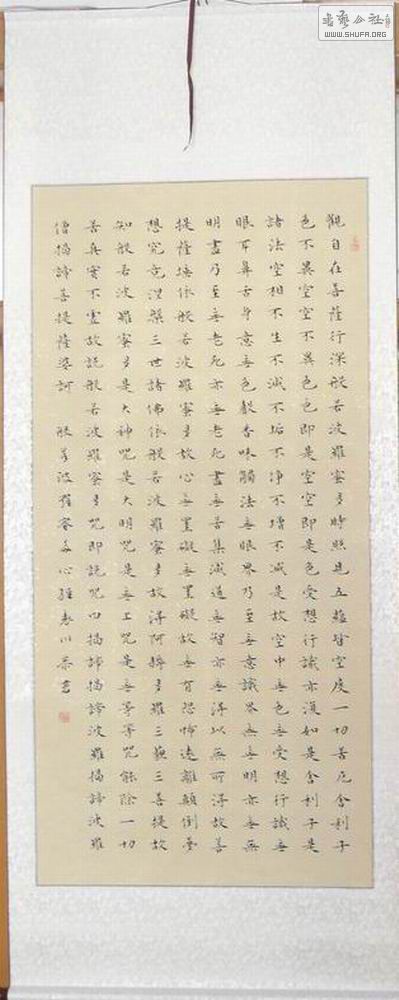 觀自在菩薩行深般若波羅蜜多時照見五蘊皆空度一切苦厄舍利子
色不異空空不異色色即是空空即是色受想行識亦復如是舍利子是
諸法空相不生不滅不垢不淨不增不減是故空中無色無受想行識無
眼耳鼻舌身意無色聲香味觸法無眼界乃至無意識界無無明亦無無
明盡乃至無老死亦無老死盡無苦集滅道無智亦無得以無所得故菩
提薩埵依般若波羅蜜多故心無罣礙無罣礙故無有恐怖遠離顛倒夢
想究竟涅槃三世諸佛依般若波羅蜜多故得阿耨多羅三藐三菩提故
知般若波羅蜜多是大神咒是大明咒是無上咒是無等等咒能除一切
苦真實不虛故說般若波羅蜜多咒即說咒曰揭諦揭諦波羅揭諦波羅
僧揭諦菩提薩婆訶 般若波羅蜜多心經 恭書
书艺公社
WWW.SHUFA.ORG